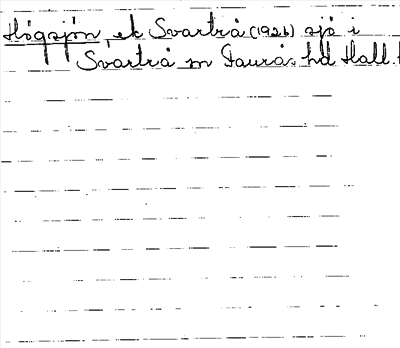 Högsjön, ek Svartrå (1926) sjö i
Svartrå sn Faurås hd Hall.